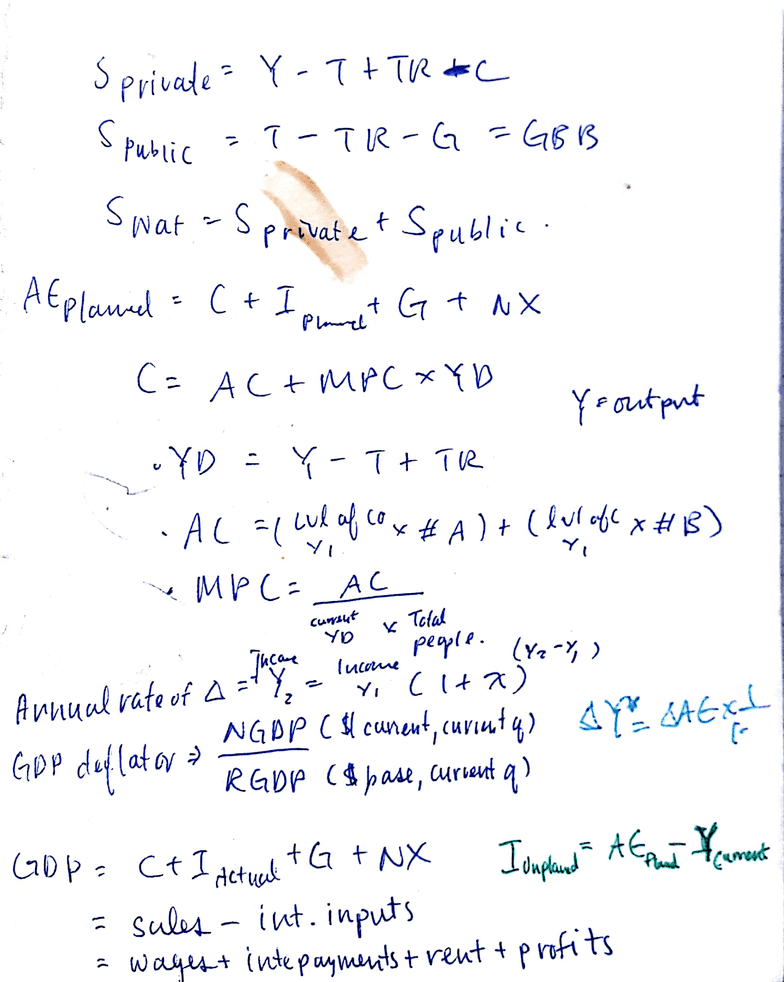 S private = Y - T + TR - C
S Public = T - TR - G = GBB
S Nat = S private + S public.
AE planned = C + I planned + G + NX
C = AC + MPC x YD
Y = output
. YD = Y - T + TR
. AC = ( lvl of co Y1 x # A ) + ( lvl of c Y1 x # B )
MPC = AC / current YD x Total people.
Annual rate of Δ = Income Y2 = Income Y1 ( 1 + x ) (Y2 - Y1)
GDP deflator => NGDP ( $ current, current q ) / RGDP ( $ base, current q )
ΔY* = ΔAE x 1
GDP = C + I Actual + G + NX
I Unpland = AE Pland - Y current
= sales - int. inputs
= wages + inte payments + rent + profits